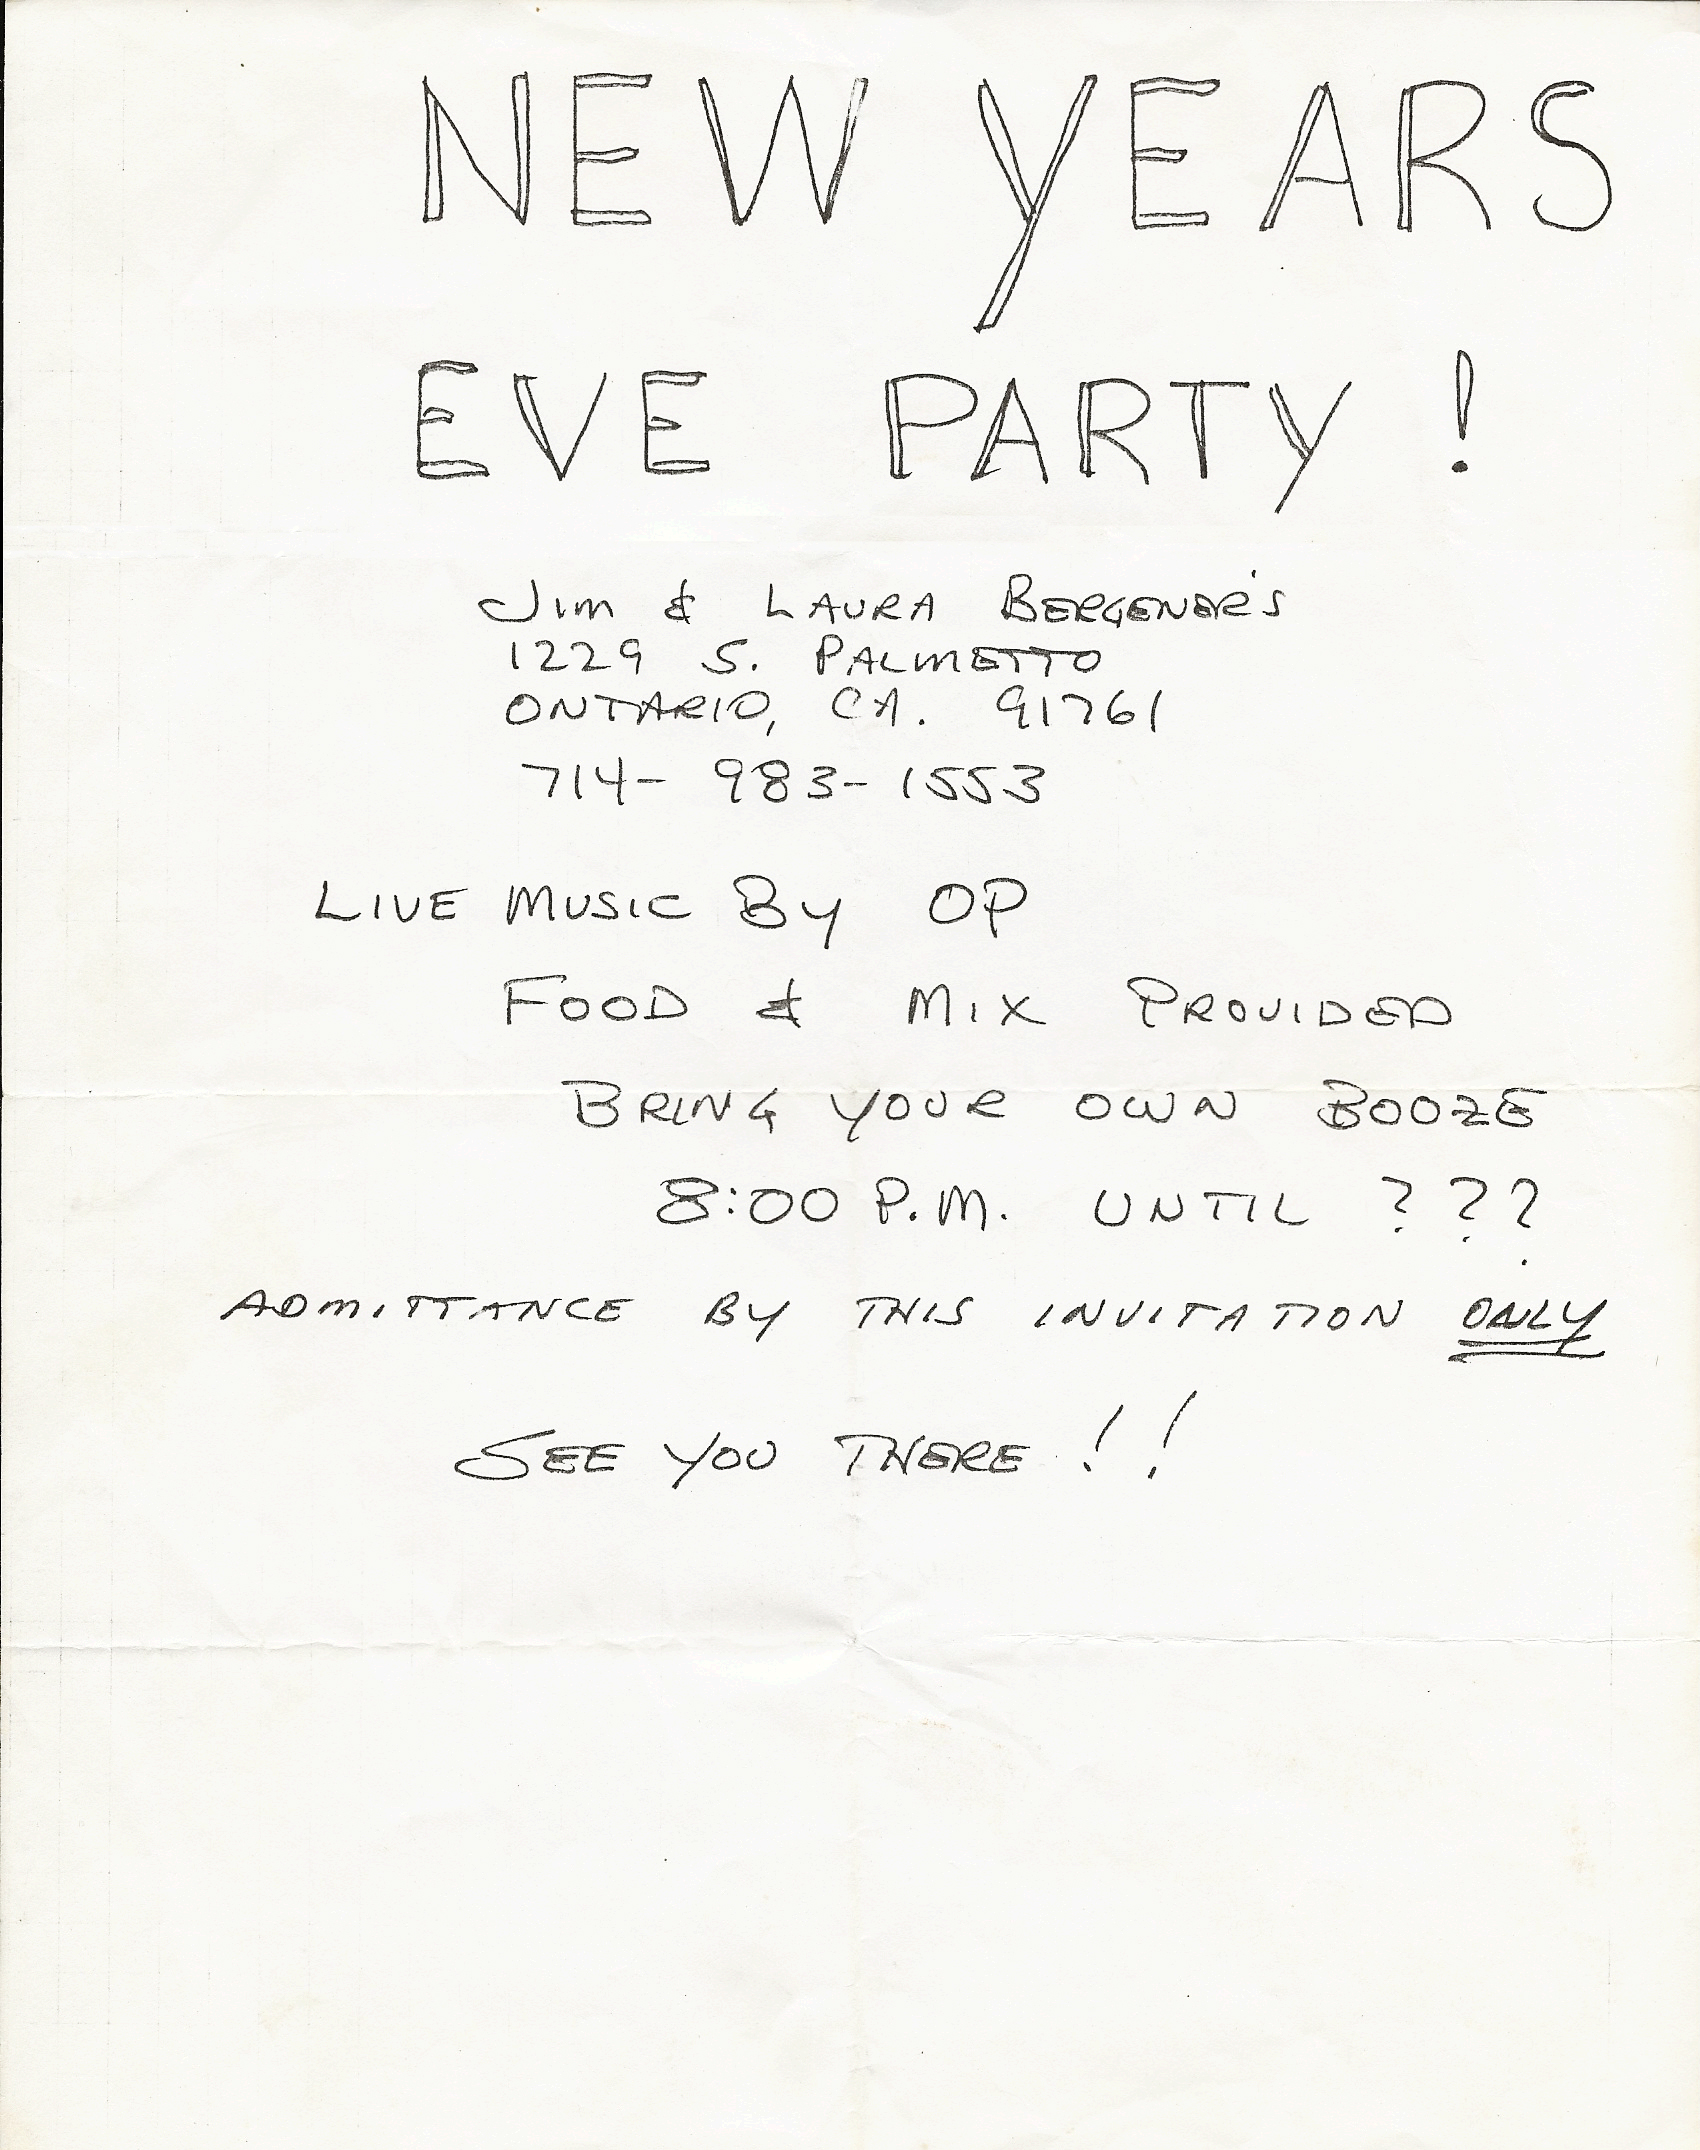 NEW YEARS
EVE PARTY!
Jim & LAURA BERGENER'S
1229 S. PALMETTO
ONTARIO, CA. 91761
714-983-1553
LIVE MUSIC By OP
FOOD & MIX PROVIDED
BRING YOUR OWN BOOZE
8:00 P.M. UNTIL ???
ADMITTANCE BY THIS INVITATION ONLY
SEE YOU THERE!!